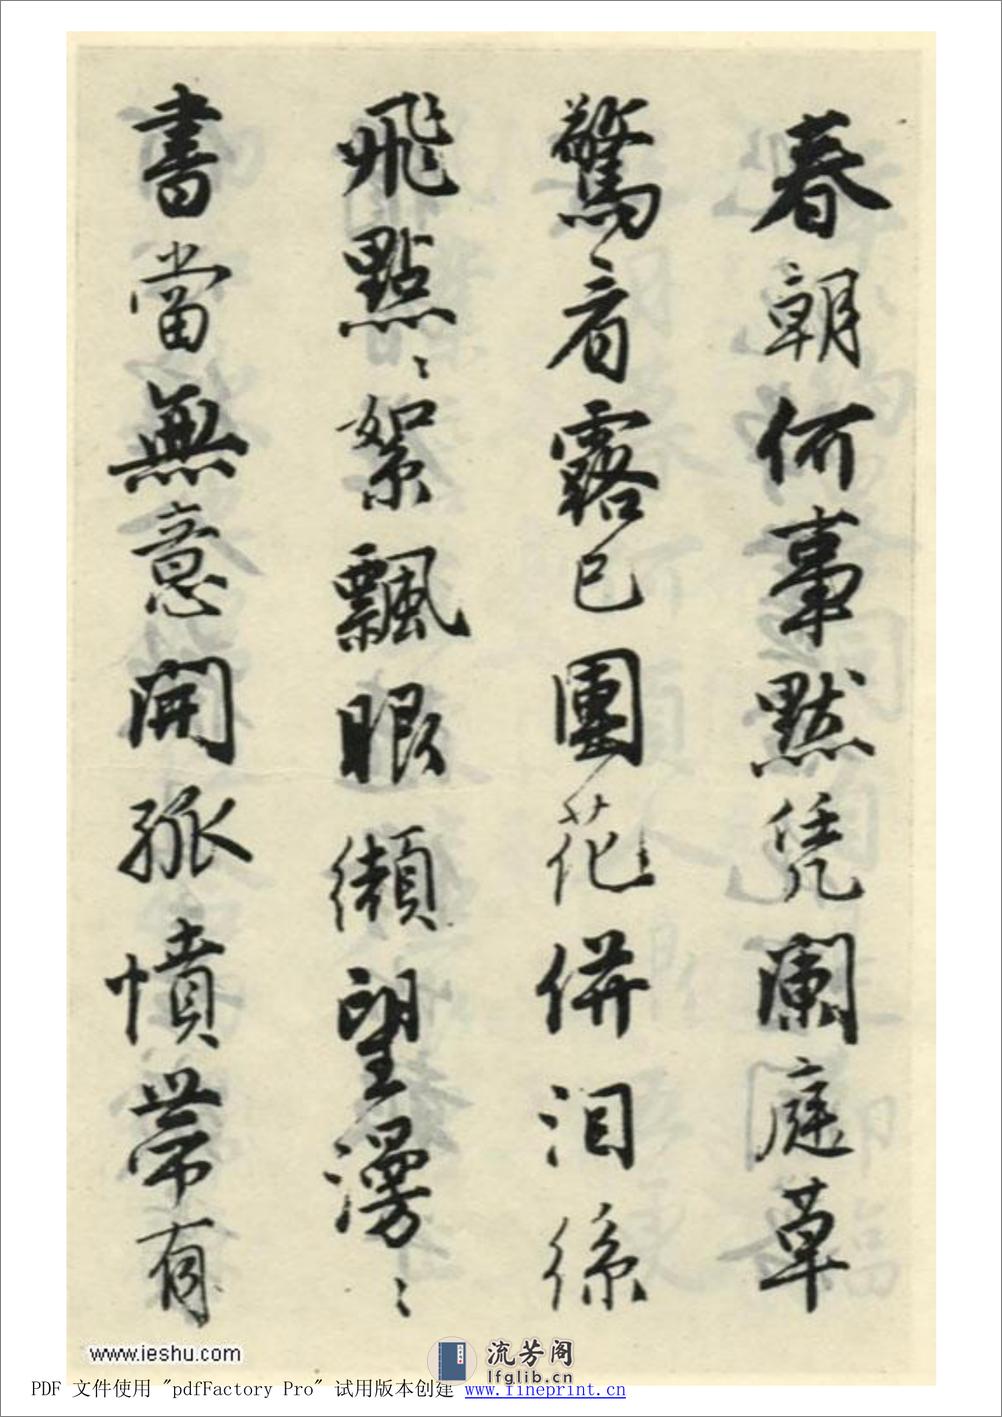 春朝何事默凭闌庭草
驚看露已團花併泪係
飛點〻絮飄眼纈望漫〻
書當無意開孤憤帶有
www.ieshu.com
流芳阁
lfglib.cn
PDF 文件使用 "pdfFactory Pro" 试用版本创建 www.fineprint.cn